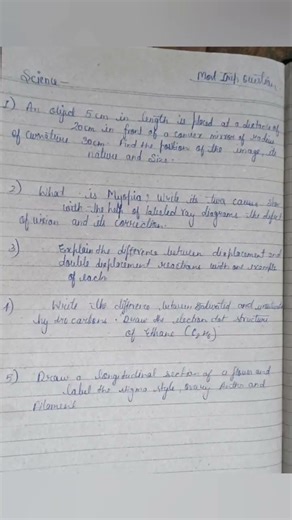 Science - Most Imp. Question
1) An object 5cm in length is placed at a distance of
20cm in front of a convex mirror of radius
of curvature 30cm. Find the position of the image, its
nature and size.
2) What is Myopia? Write its two causes. Show
with the help of labeled ray diagrams the defect
of vision and its correction.
3) Explain the difference between displacement and
double displacement reactions with one example
of each
4) Write the difference between saturated and unsaturated
hydrocarbons. Draw the electron dot structure
of Ethane (C2H6)
5) Draw a longitudinal section of a flower and
label the stigma style, ovary Anther and
Filament